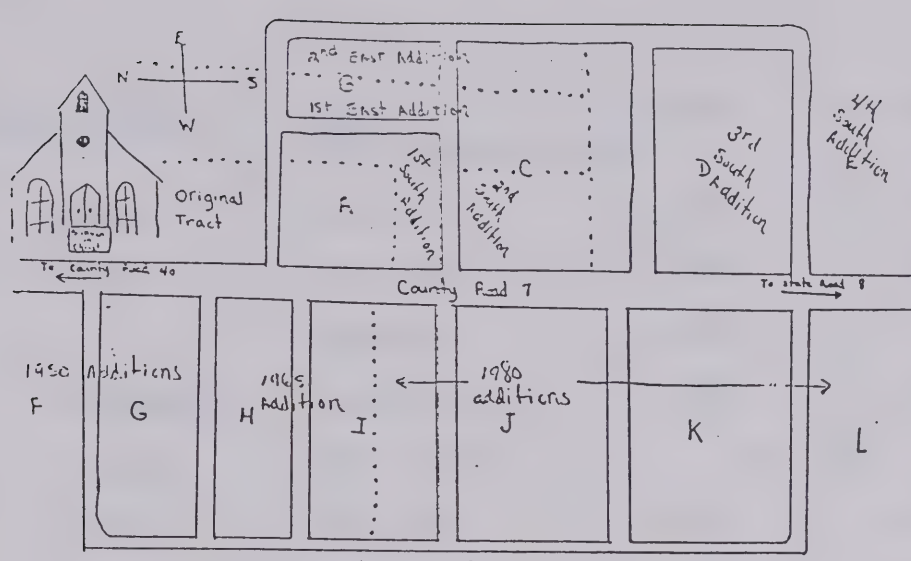 E
N S
W
2nd East Addition
1st East Addition
Original
Tract
1st
South
Addition
C
2nd
South
Addition
3rd
South
D Addition
4th
South
Addition
E
To County Road 40
County Road 7
To State Road 8
1950 Additions
F
G
1965
Addition
H
I
1980
additions
J
K
L